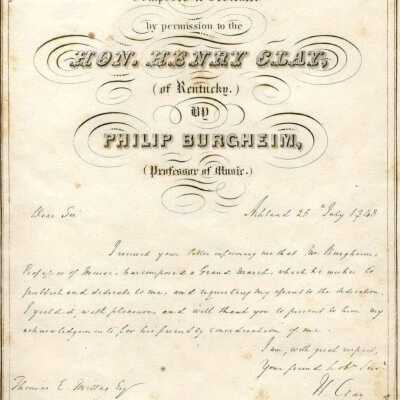 Composed & Dedicated
by permission to the
HON. HENRY CLAY,
(of Kentucky.)
BY
PHILIP BURGHEIM,
(Professor of Music.)
Dear Sir Ashland 25th July 1848
I received your letter informing me that Mr. Burgheim,
Professor of Music, has composed a Grand March, which he wishes to
publish and dedicate to me, and requesting my assent to the dedication.
I yield it, with pleasure, and will thank you to present to him my
acknowledgments for his friendly consideration of me.
I am, with great respect,
Your friend & obt. Serv.
H. Clay
Thomas E. Esq